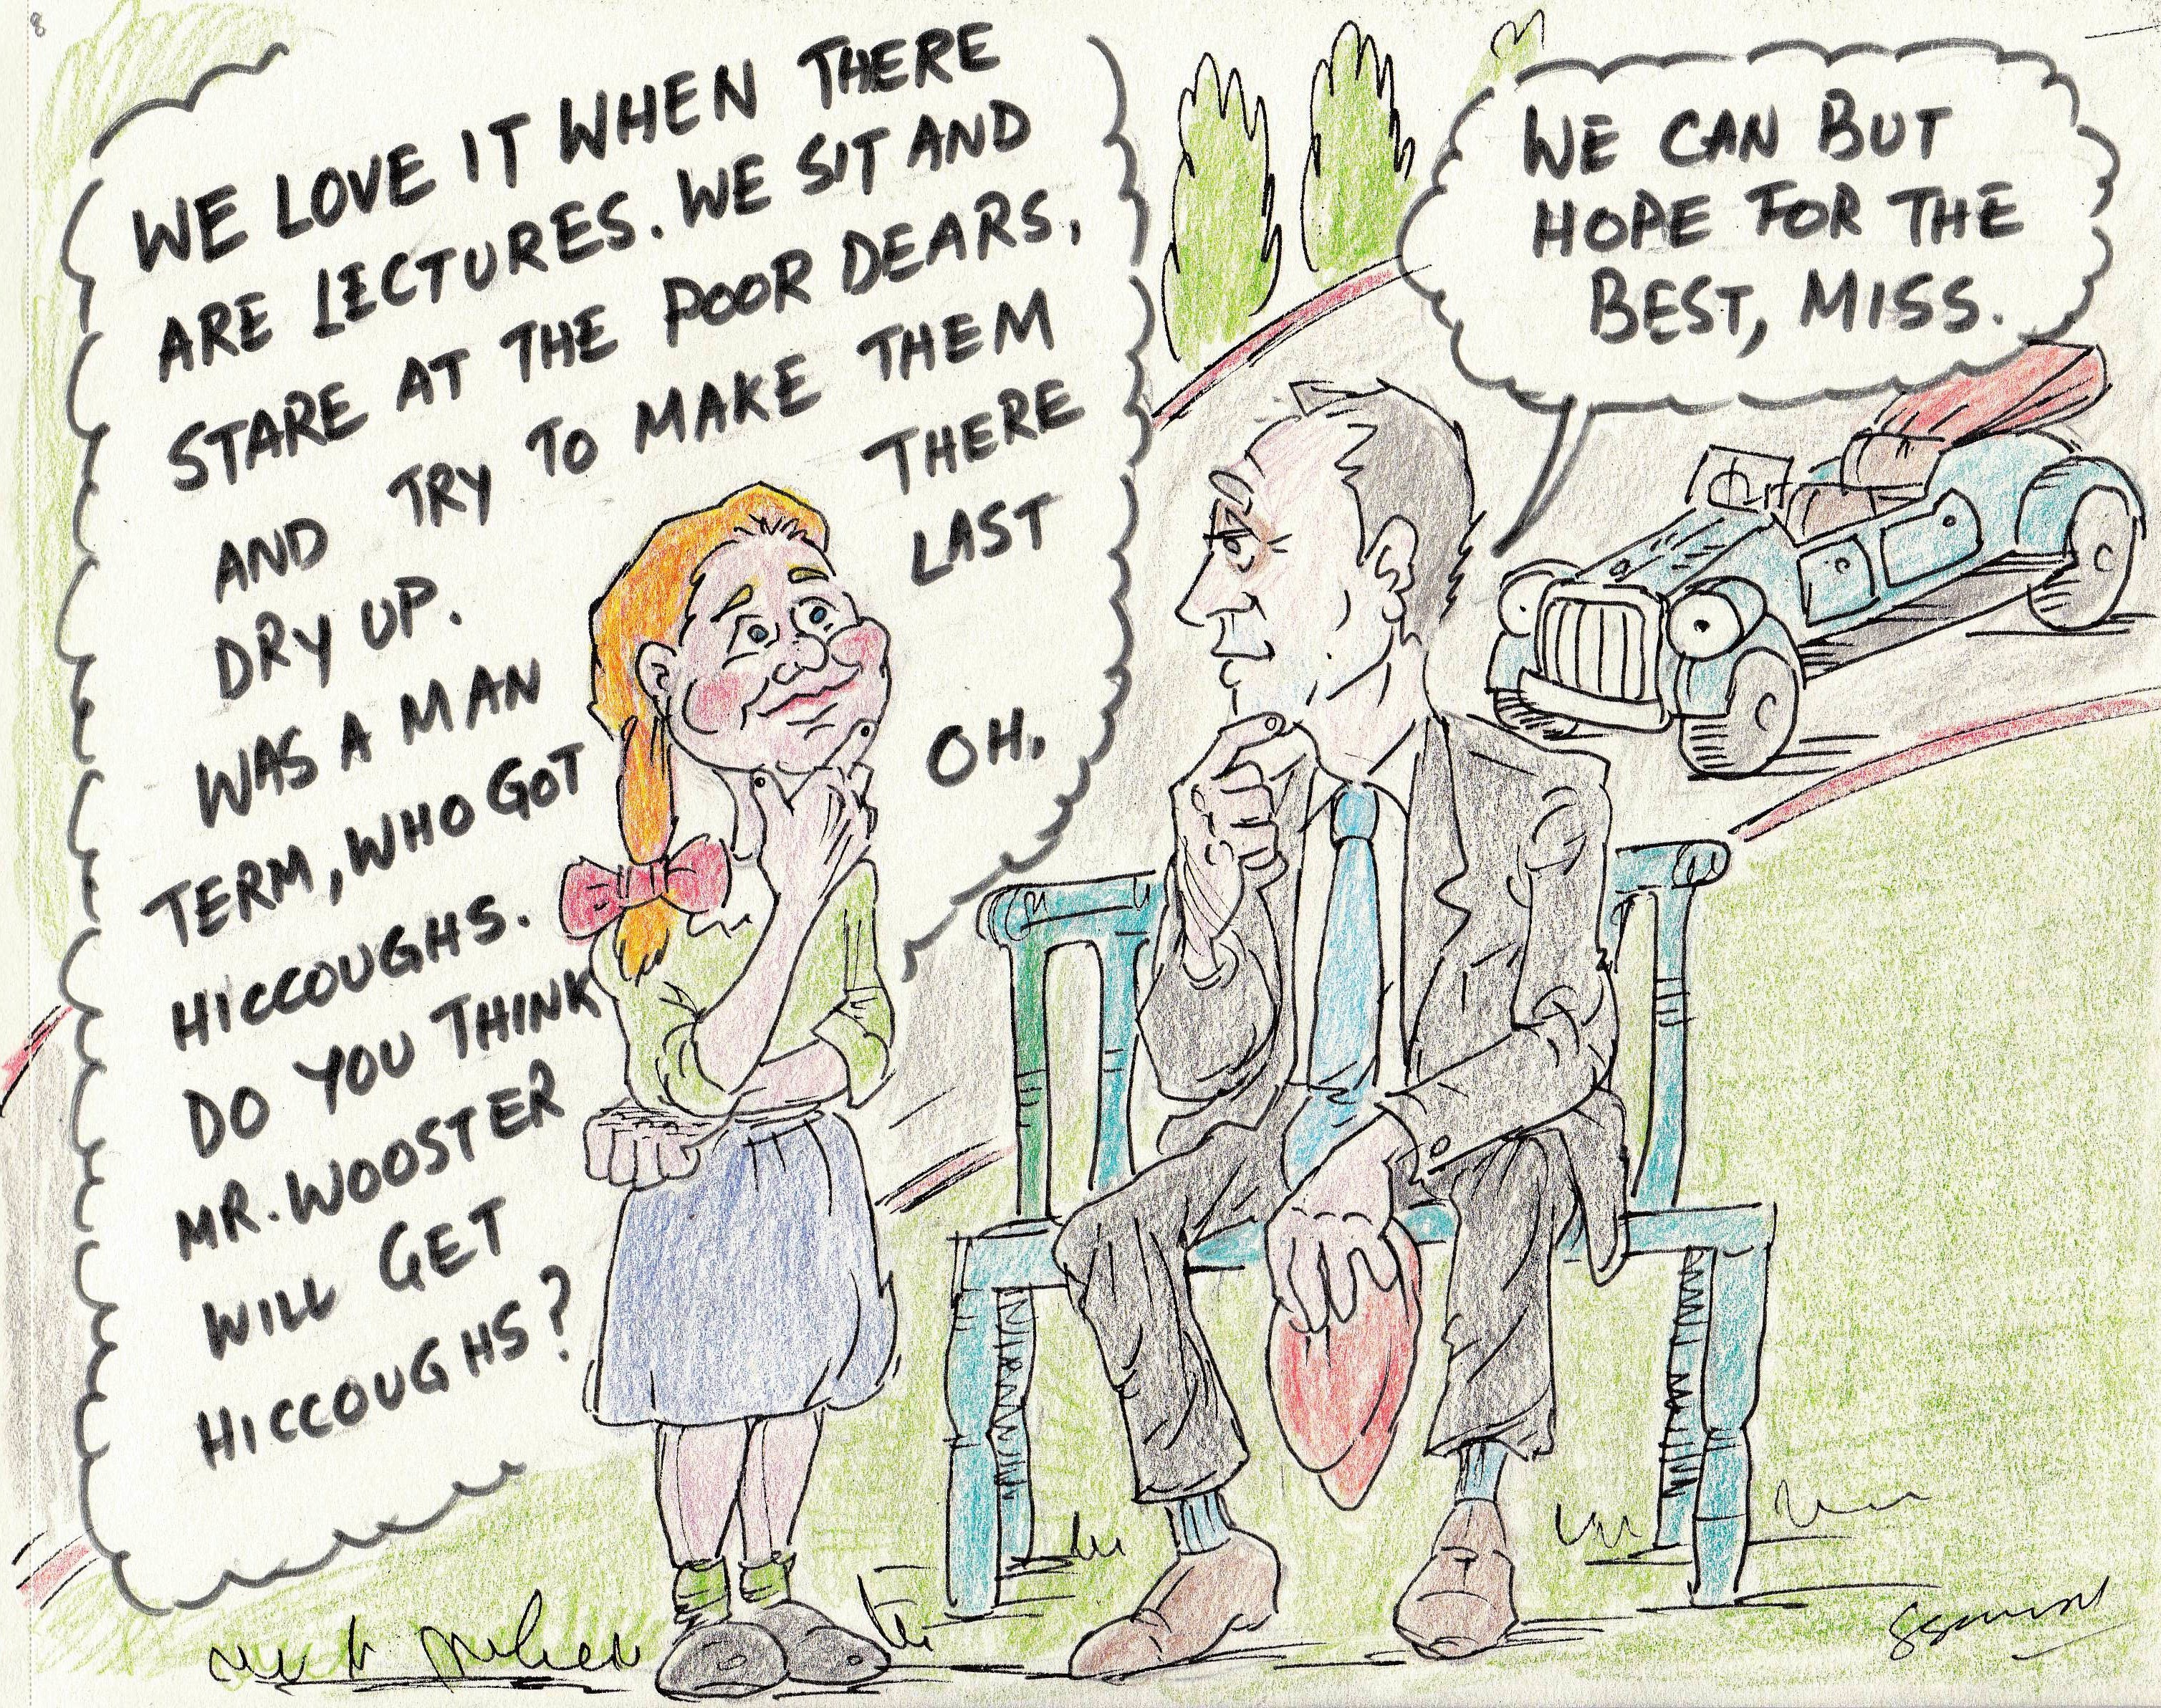 8
WE LOVE IT WHEN THERE
ARE LECTURES. WE SIT AND
STARE AT THE POOR DEARS,
AND TRY TO MAKE THEM
DRY UP. THERE
WAS A MAN LAST
TERM, WHO GOT
HICCOUGHS. OH,
DO YOU THINK
MR. WOOSTER
WILL GET
HICCOUGHS?
WE CAN BUT
HOPE FOR THE
BEST, MISS.